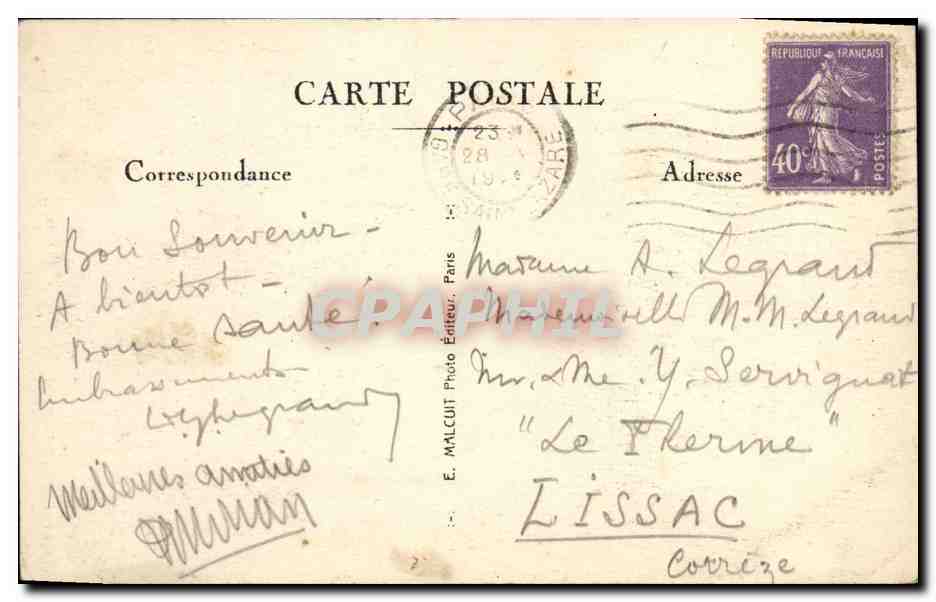 CARTE POSTALE
Correspondance
Adresse
REPUBLIQUE FRANÇAISE
40c
POSTES
GARE
23
28
19
SAINT LAZARE
Bon Souvenir -
A bientot -
Bonne Santé.
Embrassements
Legrand
Meilleures amitiés
E. MALCUIT Photo Éditeur, Paris
Madame A. Legrand
Mademoiselle M. M. Legrand
Mr. & Me. Y. Servignat
"Le Therme"
LISSAC
Corrèze
CPAPHIL